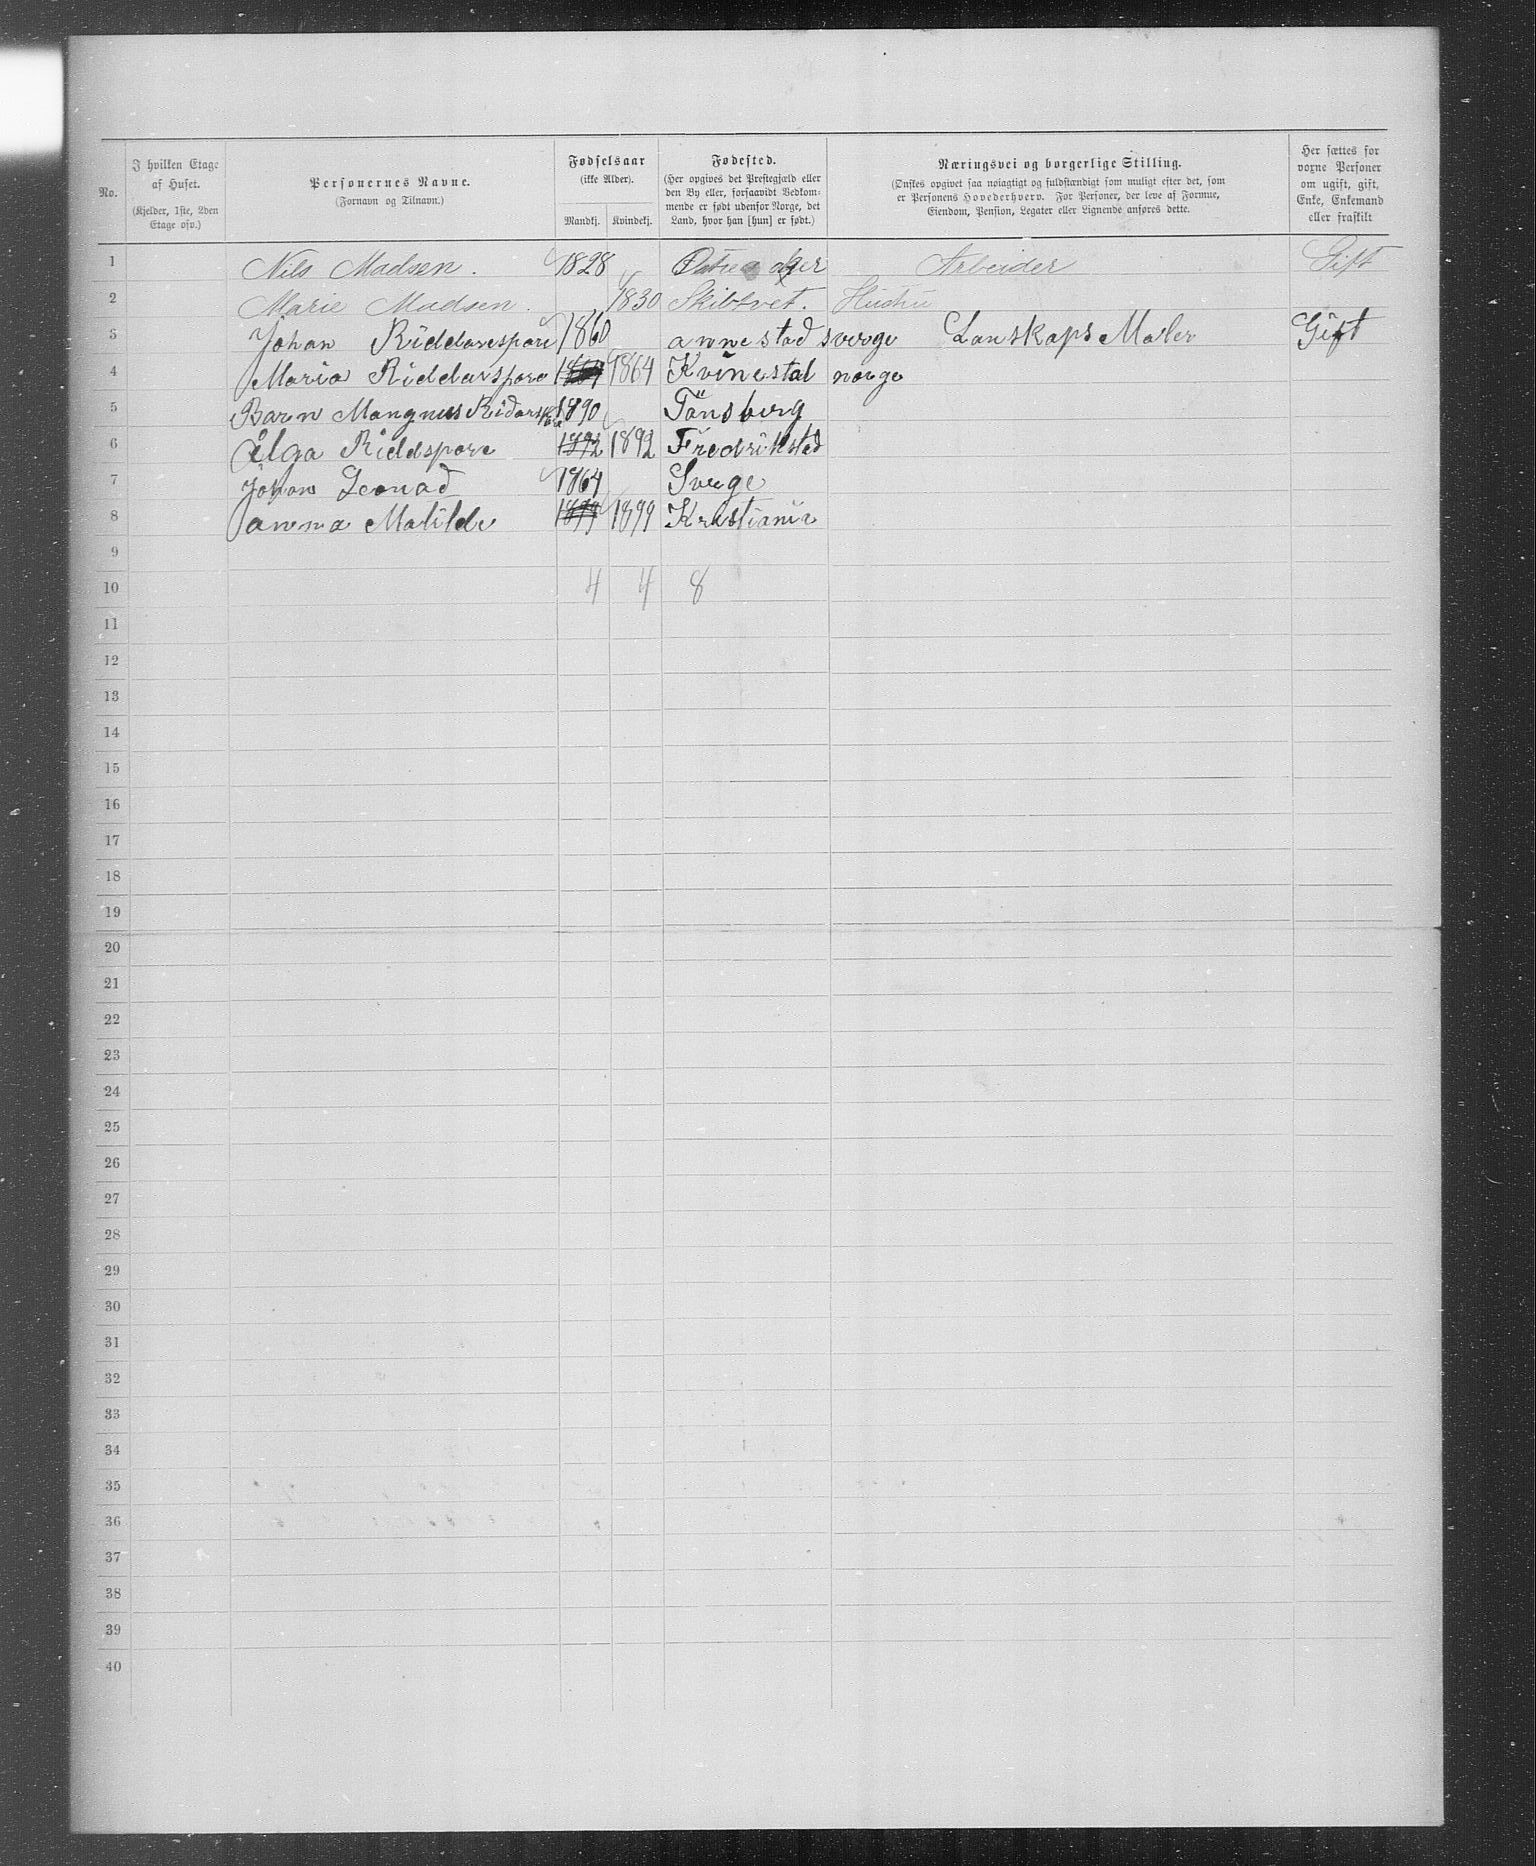 No.
I hvilken Etage af Huset. (Kjelder, 1ste, 2den Etage osv.)
Personernes Navne. (Fornavn og Tilnavn.)
Fødselsaar (ikke Alder).
Mandkj. Kvindekj.
Fødested. (Her opgives det Prestegjæld eller den By eller, forsaavidt Vedkommende er født udenfor Norge, det Land, hvor han [hun] er født.)
Næringsvei og borgerlige Stilling. (Ønskes opgivet saa nøiagtigt og fuldstændigt som muligt efter det, som er Personens Hovederhverv. For Personer, der leve af Formue, Eiendom, Pension, Legater eller Lignende anføres dette.)
Her sættes for voxne Personer om ugift, gift, Enke, Enkemand eller fraskilt
1 Nils Madsen. 1828 Arbeider Gift
2 Marie Madsen. 1830 Skibtvet. Hustru
3 Johan Riddarespore 1860 annestad sverge Lanskaps Maler Gift
4 Maria Riddarspore 1864 Kvinestal norge
5 Barn Mangnus Ridarspore 1890 Tönsberg
6 Elga Riddspore 1892 1892 Fredrikstad
7 Johan Leonad 1864 Sverge
8 anma Matilde 1899 1899 Kristiania
9
10 4 4 8
11
12
13
14
15
16
17
18
19
20
21
22
23
24
25
26
27
28
29
30
31
32
33
34
35
36
37
38
39
40